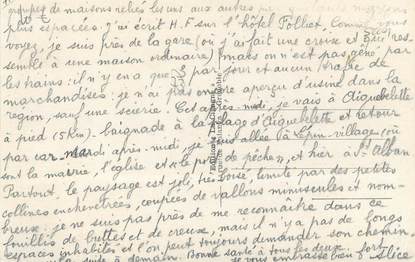 groupes de maisons reliés les uns aux autres par
plus espacées. j'ai écrit H.F sur l'hôtel Folliet. Comme vous
voyez, je suis près de la gare (où j'ai fait une croix et qui res-
semble à une maison ordinaire) mais on n'est pas gêné par
les trains: il n'y en a que par jour et aucun trafic de
marchandises. je n'ai pas encore aperçu d'usine dans la
région, sauf une scierie. Cet après-midi, je vais à Aiguebelette
à pied (5 km) - baignade à la plage d'Aiguebelette et retour
par car. Mardi après-midi, je suis allée là Lépin-village (où
sont la mairie, l'église et « le port de pêche », et hier à St Alban
Partout le paysage est joli, très boisé, limité par des petites
collines enchevêtrées, coupées de vallons minuscules et nom-
breux. je ne suis pas près de me reconnaître dans ce
fouillis de buttes et de creux, mais il n'y a pas de longs
espaces inhabités et l'on peut toujours demander son chemin.
la suite à demain. Bonne santé à tous les deux.
je vous embrasse bien fort Alice